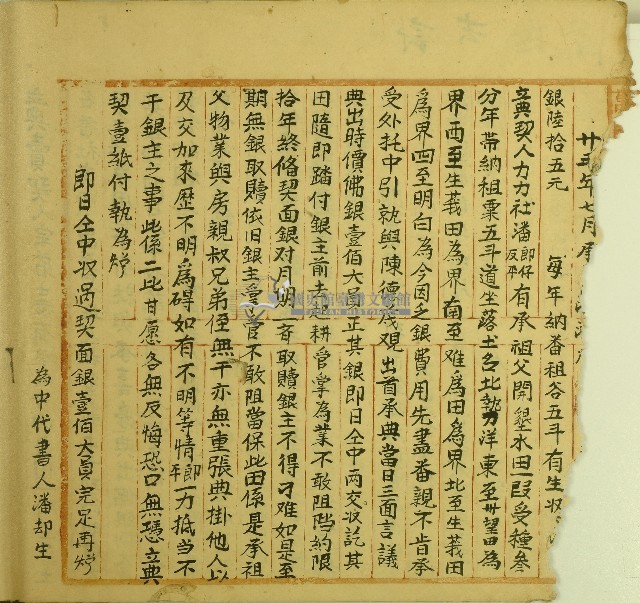 廿五年七月
銀陸拾五元　每年納番租谷五斗有生收
立典契人力力社潘郎仔反平有承祖父開墾水田一段受種叁
分年帶納祖粟五斗道坐落土名北勢洋東至卅望田為
界西至生莪田為界南至难為田為界北至生莪田
為界四至明白為今因乏銀費用先盡番親不肯承
受外托中引就與陳德茂观出首承典當日三面言議
典出時價佛銀壹佰大員正其銀即日仝中兩交收訖其
田隨即踏付銀主前去起耕管掌為業不敢阻階約限
拾年終俻契面銀对月期一齊取贖銀主不得刁难如是至
期無銀取贖依旧銀主掌管不敢阻當保此田係是承祖
父物業與房親叔兄弟侄無干亦無重張典掛他人以
及交加來歷不明為碍如有不明等情郎平一力抵当不
干銀主之事此係二比甘愿各無反悔恐口無憑立典
契壹紙付執為炤
即日仝中收過契面銀壹佰大員完足再炤
為中代書人潘却生